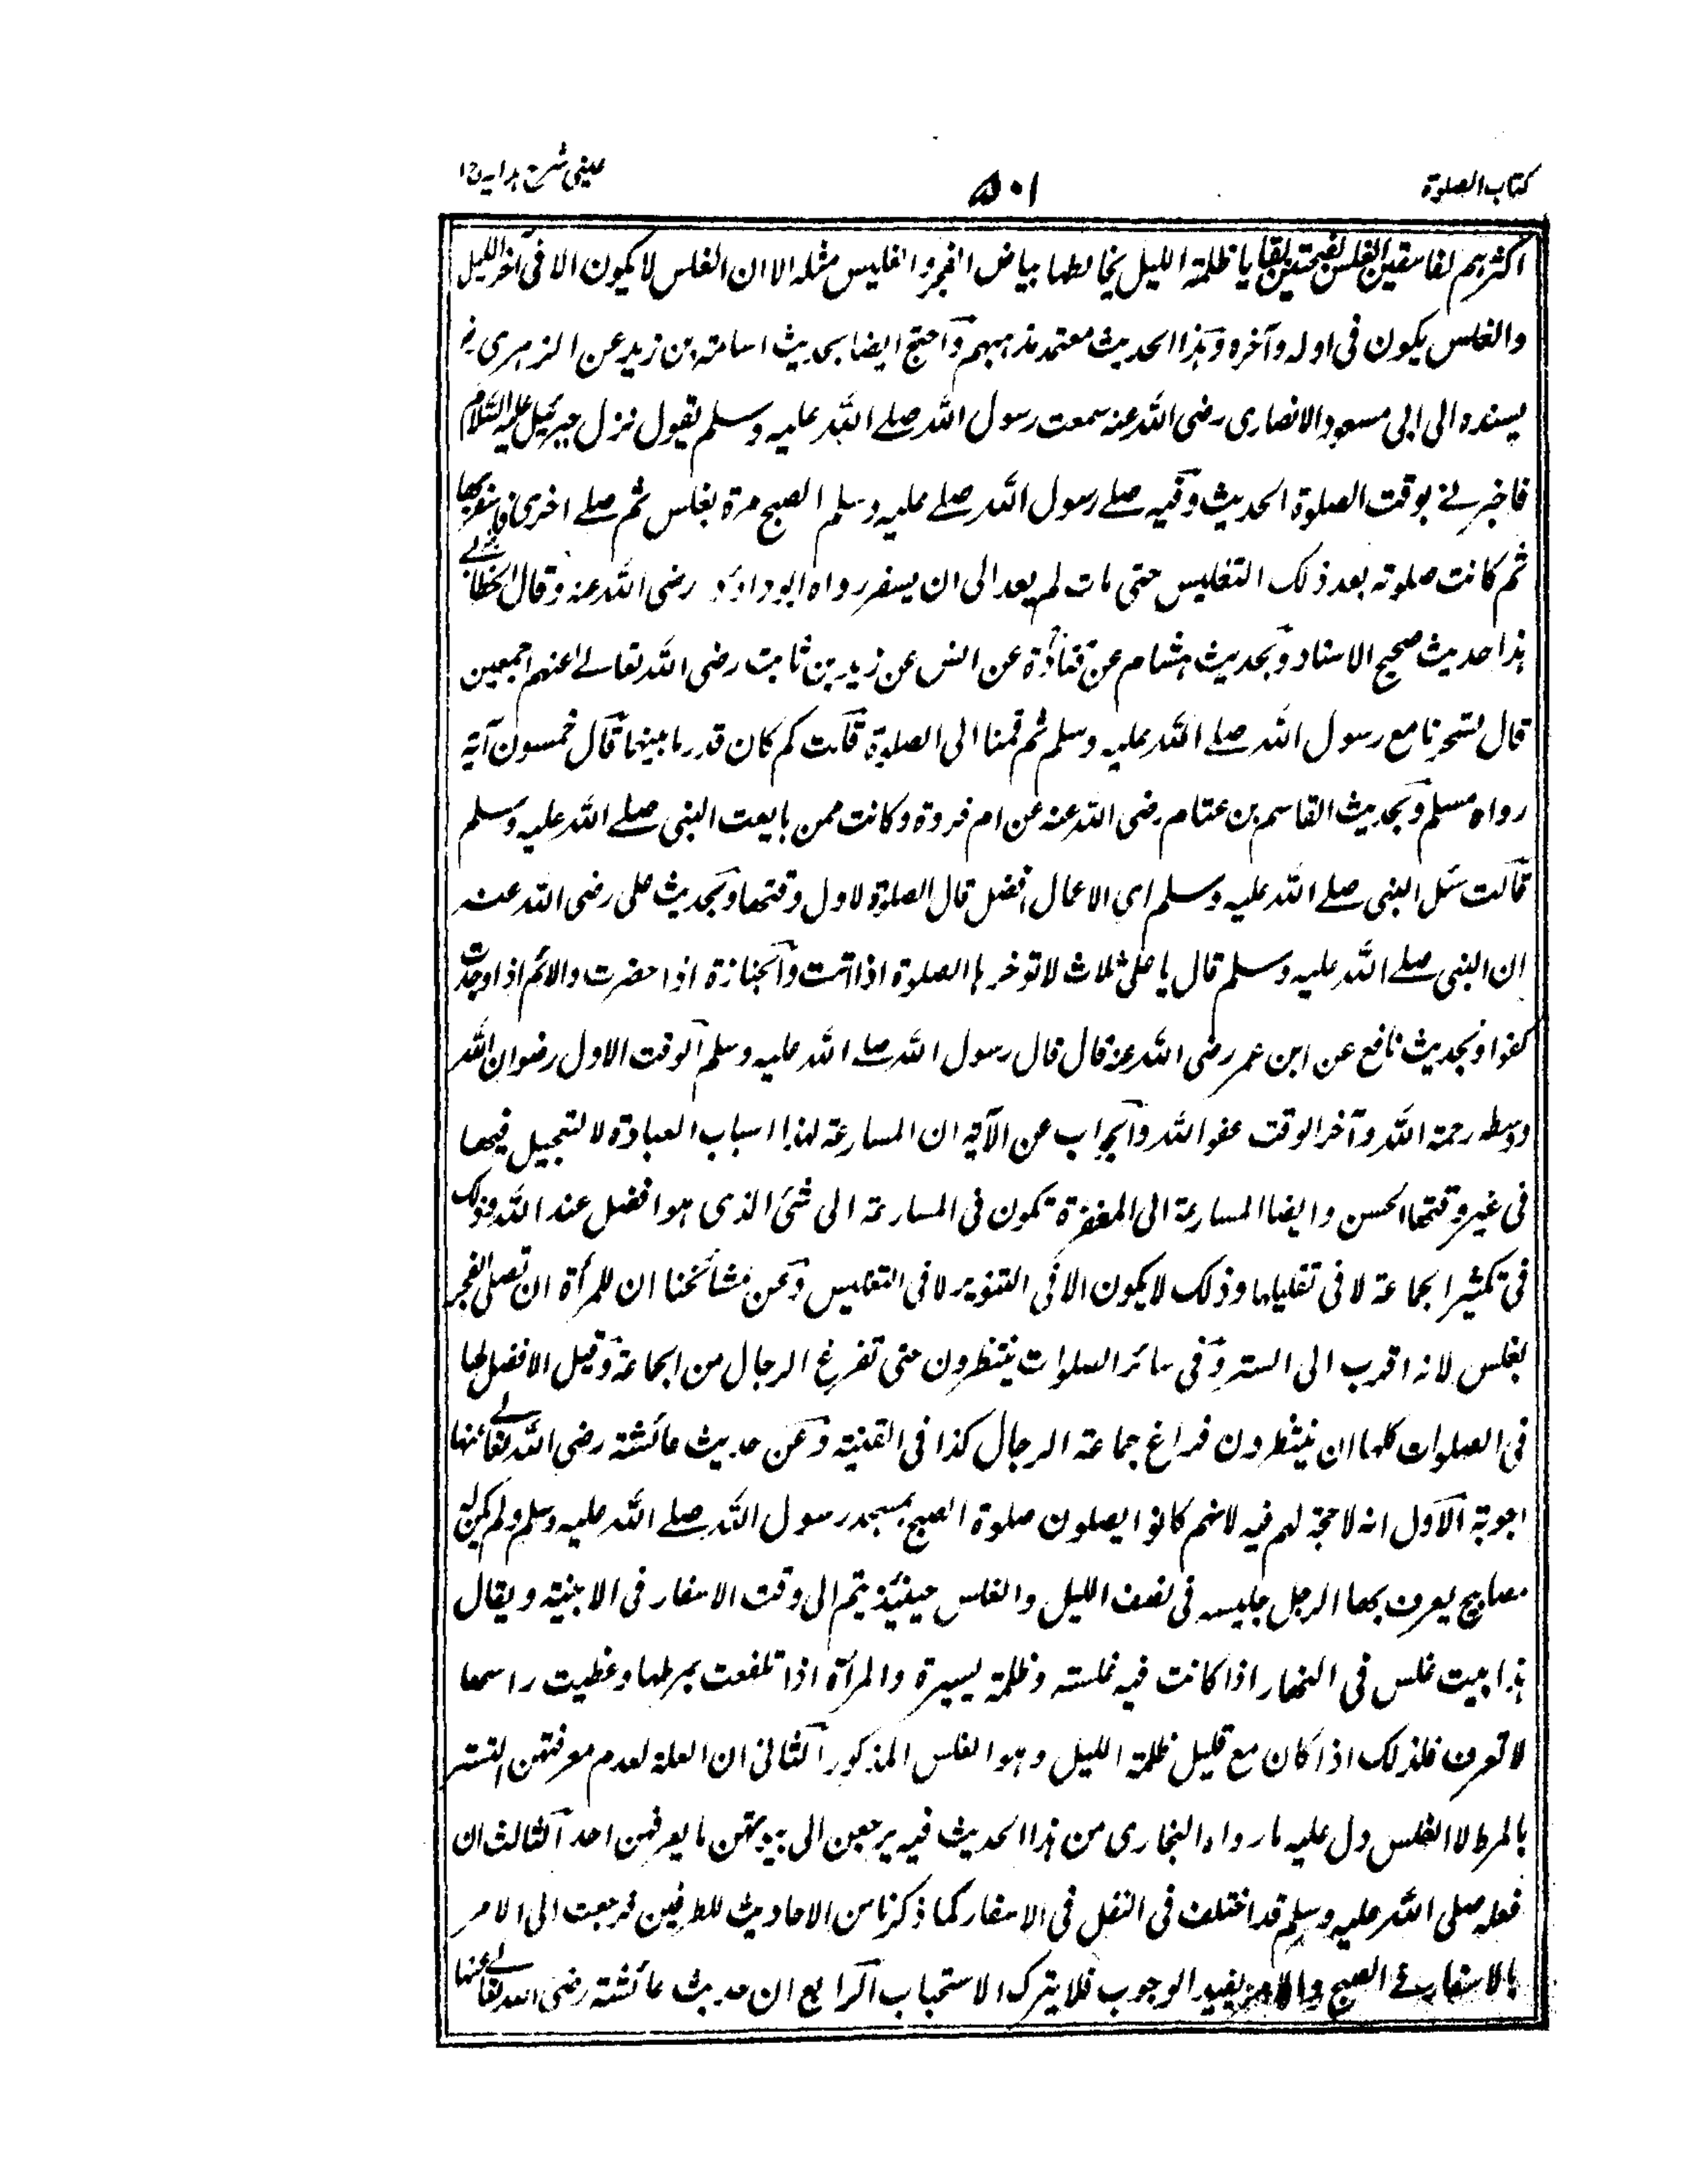 كتاب الصلوة
۵۰۱
عینی شرح ہدایہ ج۱
اكثرہم لفاسقين الغلس بفتحتين بقايا ظلمة الليل يخالطها بياض الفجر والغليس مثله الا ان الغلس لا يكون الا فى آخر الليل
والغلس يكون فى اوله وآخره وہذا الحديث معتمد مذہبہم واحتج ايضا بحديث اسامة بن زيد عن الزہرى
يسنده الى ابى مسعود الانصارى رضى الله عنه سمعت رسول الله صلے الله عليه وسلم يقول نزل جبرئيل عليه السلام
فاخبرنے بوقت الصلوة الحديث وفيه صلے رسول الله صلے عليه وسلم الصبح مرة بغلس ثم صلے اخرى فاسفر بها
ثم كانت صلوته بعد ذلك التغليس حتى مات لم يعد الى ان يسفر رواه ابو داؤد رضى الله عنه وقال الخطابے
ہذا حديث صحيح الاسناد وبحديث ہشام عن قتادة عن انس عن زيد بن ثابت رضى الله تعالے عنہم اجمعين
قال تسحرنا مع رسول الله صلے الله عليه وسلم ثم قمنا الى الصلوة قلت كم كان قدر ما بينہما قال خمسون آية
رواه مسلم وبحديث القاسم بن عتام رضى الله عنه عن ام فروة وكانت ممن بايعت النبى صلے الله عليه وسلم
قالت سئل النبى صلے الله عليه وسلم اى الاعمال افضل قال الصلوة لاول وقتها وبحديث على رضى الله عنه
ان النبى صلے الله عليه وسلم قال يا على ثلاث لا توخرہا الصلوة اذا اتت والجنازة اذا حضرت والائم اذا وجدت
كفوا وبحديث نافع عن ابن عمر رضى الله عنه قال قال رسول الله صلے الله عليه وسلم الوقت الاول رضوان الله
ووسطه رحمة الله وآخر الوقت عفو الله والجواب عن الآية ان المسارعة لہذا اسباب العبادة لا لتعجيل فيها
فى غير وقتها الحسن وايضا المسارعة الى المغفرة تكون فى المسارعة الى شئ الذى ہو افضل عند الله وذلك
فى تكثير الجماعة لا فى تقليلہا وذلك لا يكون الا فى التنوير لا فى التغليس وعن مشائخنا ان للمرأة ان تصلى الفجر
بغلس لانه اقرب الى الستر وفى سائر الصلوات ينتظرون حتى تفرغ الرجال من الجماعة وقيل الافضل لها
فى الصلوات كلہا ان ينتظرون فراغ جماعة الرجال كذا فى القنية وعن حديث عائشة رضى الله تعالے عنہا
اجوبة الاول انه لا حجة لہم فيه لانہم كانوا يصلون صلوة الصبح بمسجد رسول الله صلے الله عليه وسلم ولم يكن له
مصابيح يعرف بہا الرجل جليسه فى نصف الليل والغلس حينئذ يتم الى وقت الاسفار فى الابنية ويقال
ہذا بيت غلس فى النہار اذا كانت فيه غلسة وظلمة يسيرة والمرأة اذا تلفعت بمرطہا وغطيت راسہا
لا تعرف فلذلك اذا كان مع قليل ظلمة الليل وہو الغلس المذكور الثانى ان العلة لعدم معرفتہن التستر
بالمرط لا الغلس دل عليه ما رواه البخارى من ہذا الحديث فيه يرجعن الى بيوتہن ما يعرفہن احد الثالث ان
فعله صلى الله عليه وسلم قد اختلف فى النفل فى الاسفار كما ذكرنا من الاحاديث للطرفين فرجعت الى الامر
بالاسفار فے الصبح والامر يفيد الوجوب فلا يترك الاستحباب الرابع ان حديث عائشة رضى الله تعالے عنہا